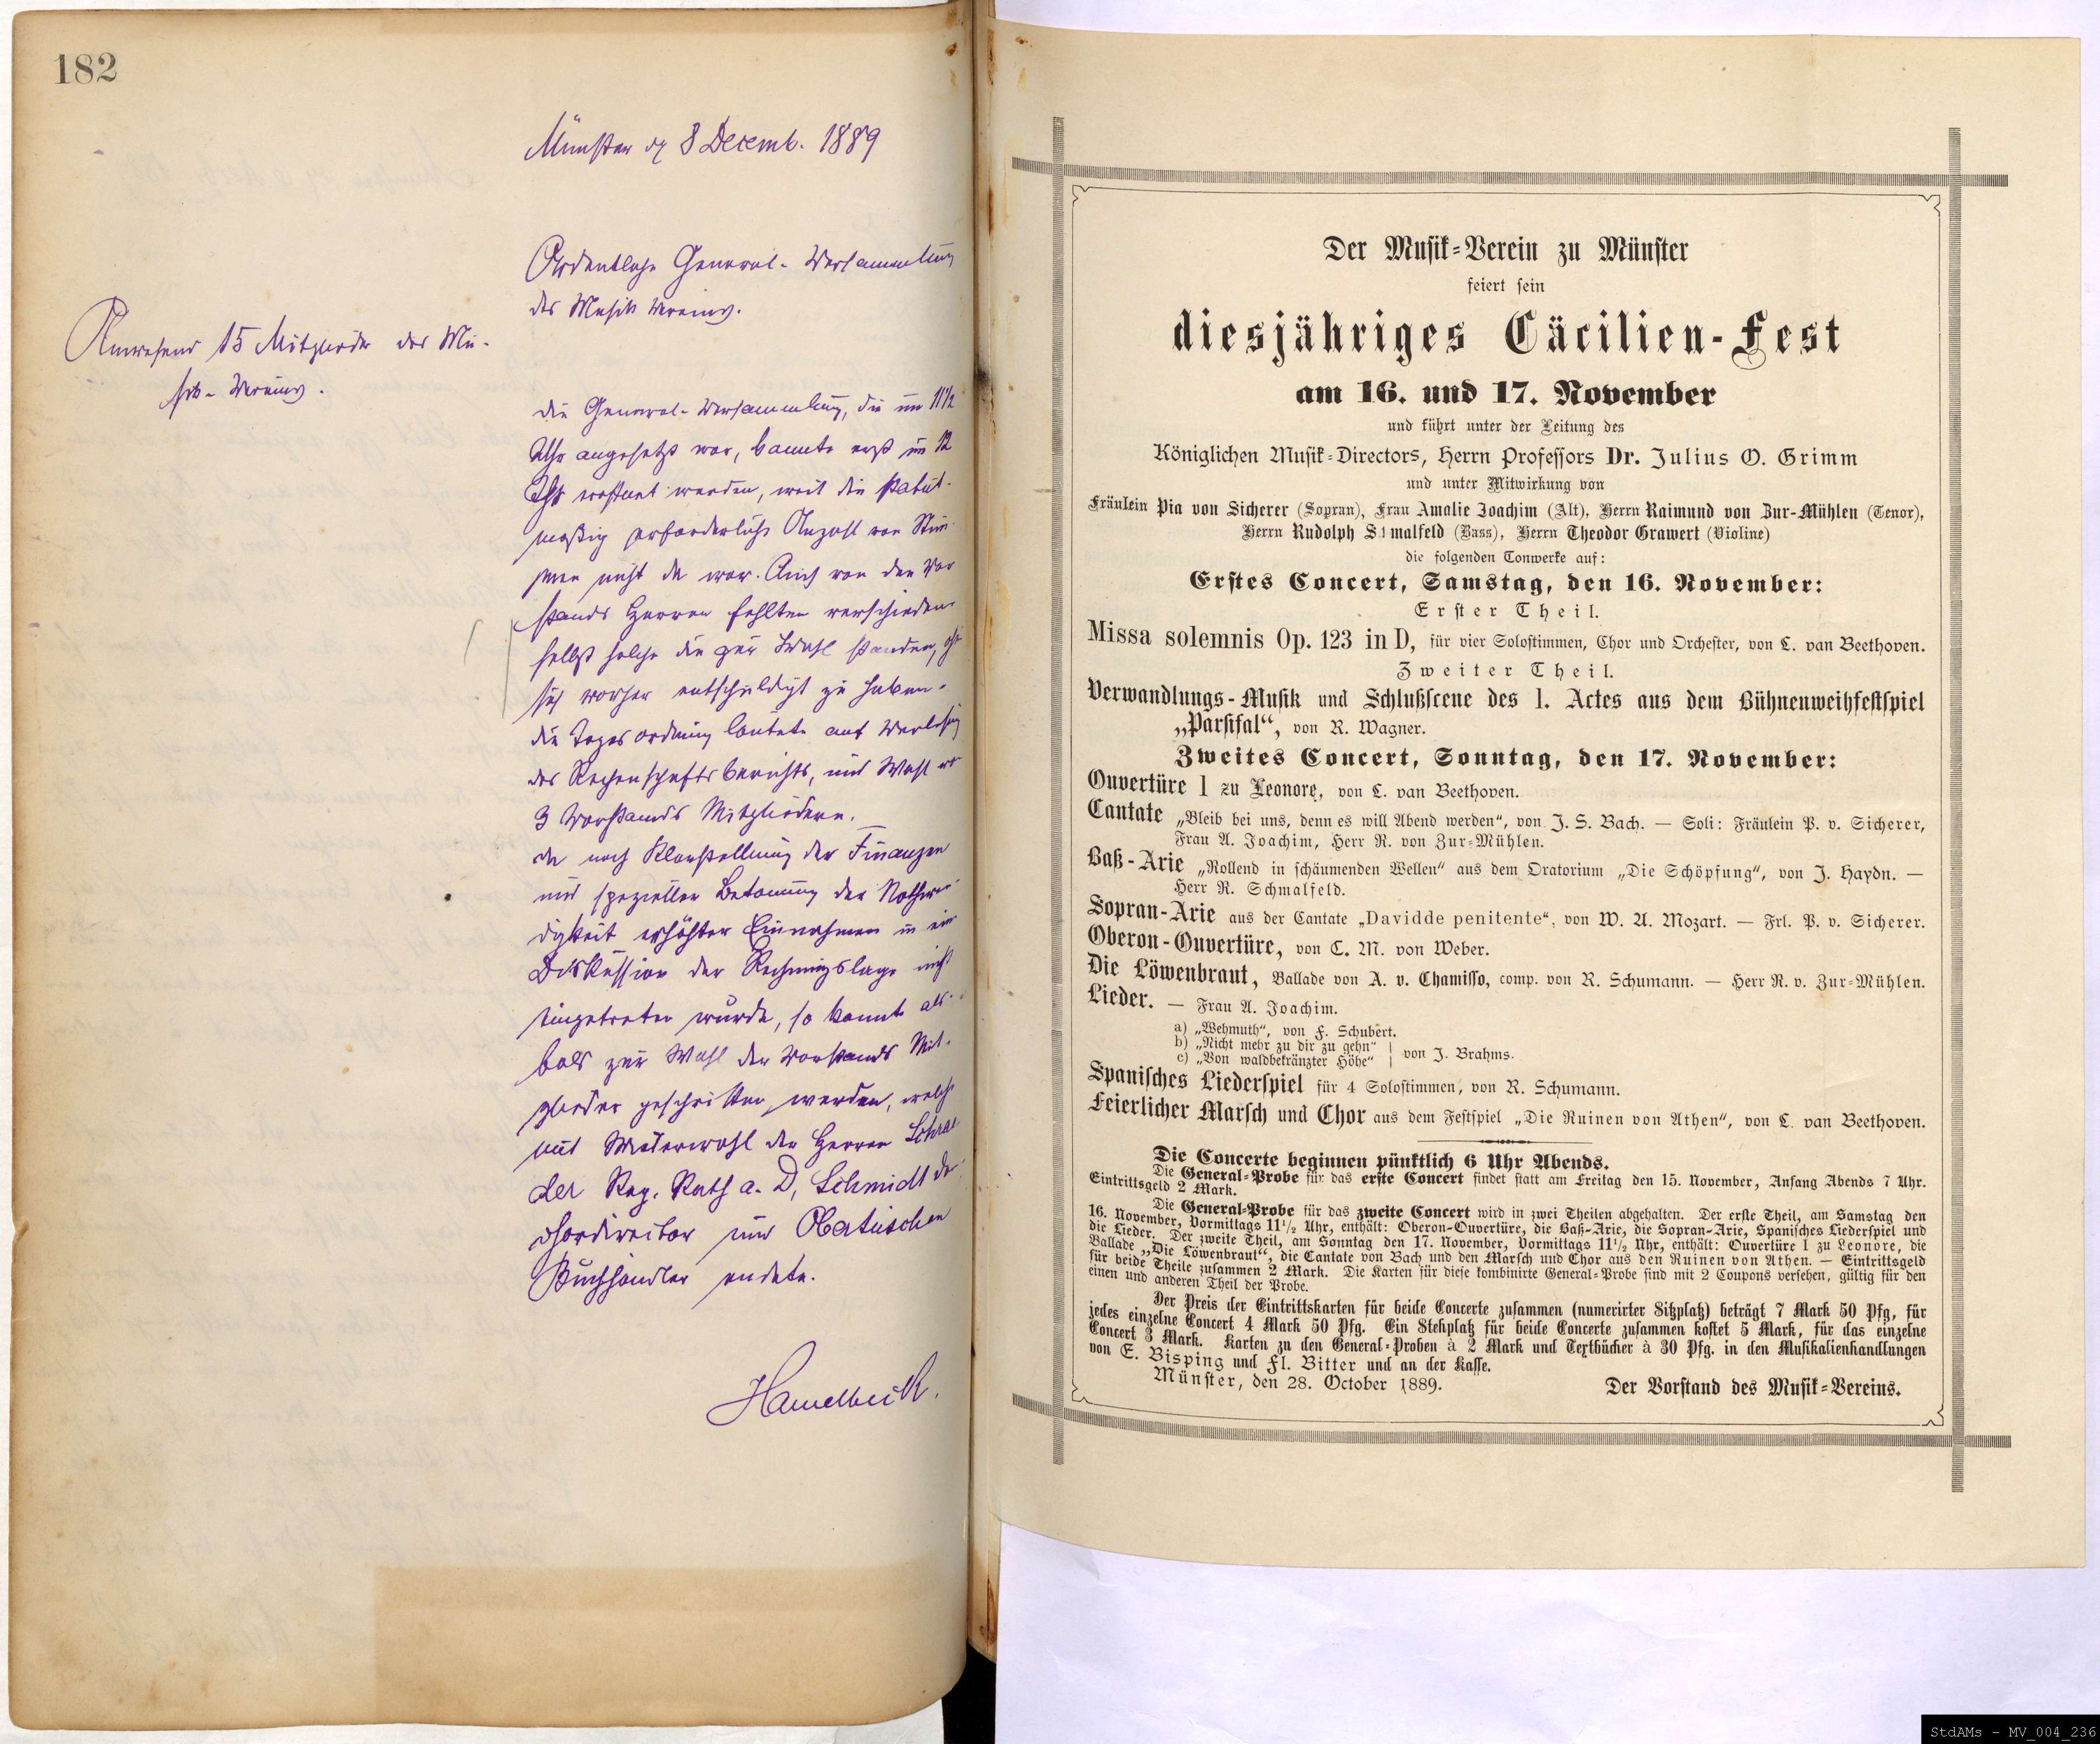 182
Münster d 8 Decemb. 1889
Ordentliche General-Versammlung
des Musik Vereins.
Anwesend 15 Mitglieder des Mu-
sik-Vereins.
Die General-Versammlung, die um 11 1/2
Uhr angesetzt war, konnte erst um 12
Uhr eröffnet werden, weil die statut-
mäßig erforderliche Anzahl von Stim-
men nicht da war. Auch von den Vor
stands Herren fehlten verschiedene
selbst solche die zur Wahl standen, ohne
sich vorher entschuldigt zu haben.
Die Tagesordnung lautete auf Verlesung
des Rechenschaftsberichts, und Wahl von
3 Vorstands Mitgliedern.
Da nach Klarstellung der Finanzen
und spezieller Betonung der Nothwen
digkeit erhöhter Einnahmen in eine
Diskussion der Rechnungslage nicht
eingetreten wurde, so konnte als-
bald zur Wahl der Vorstands Mit-
glieder geschritten werden, welche
mit Wiederwahl der Herren Schra
der Reg. Rath a. D, Schmidt
Chordirektor und Obertüschen
Buchhändler endete.
Hamelbeck.
Der Musik-Verein zu Münster
feiert sein
diesjähriges Cäcilien-Fest
am 16. und 17. November
und führt unter der Leitung des
Königlichen Musik-Directors, Herrn Professors Dr. Julius O. Grimm
und unter Mitwirkung von
Fräulein Pia von Sicherer (Sopran), Frau Amalie Joachim (Alt), Herrn Raimund von Zur-Mühlen (Tenor),
Herrn Rudolph Schmalfeld (Bass), Herrn Theodor Grawert (Violine)
die folgenden Tonwerke auf:
Erstes Concert, Samstag, den 16. November:
Erster Theil.
Missa solemnis Op. 123 in D, für vier Solostimmen, Chor und Orchester, von L. van Beethoven.
Zweiter Theil.
Verwandlungs-Musik und Schlußscene des 1. Actes aus dem Bühnenweihfestspiel
„Parsifal“, von R. Wagner.
Zweites Concert, Sonntag, den 17. November:
Ouvertüre I zu Leonore, von L. van Beethoven.
Cantate „Bleib bei uns, denn es will Abend werden“, von J. S. Bach. — Soli: Fräulein P. v. Sicherer,
Frau A. Joachim, Herr R. von Zur-Mühlen.
Baß-Arie „Rollend in schäumenden Wellen“ aus dem Oratorium „Die Schöpfung“, von J. Haydn. —
Herr R. Schmalfeld.
Sopran-Arie aus der Cantate „Davidde penitente“, von W. A. Mozart. — Frl. P. v. Sicherer.
Oberon-Ouvertüre, von C. M. von Weber.
Die Löwenbraut, Ballade von A. v. Chamisso, comp. von R. Schumann. — Herr R. v. Zur-Mühlen.
Lieder. — Frau A. Joachim.
a) „Wehmuth“, von F. Schubert.
b) „Nicht mehr zu dir zu gehn“
c) „Von waldbekränzter Höhe“ } von J. Brahms.
Spanisches Liederspiel für 4 Solostimmen, von R. Schumann.
Feierlicher Marsch und Chor aus dem Festspiel „Die Ruinen von Athen“, von L. van Beethoven.
Die Concerte beginnen pünktlich 6 Uhr Abends.
Die General-Probe für das erste Concert findet statt am Freitag den 15. November, Anfang Abends 7 Uhr.
Eintrittsgeld 2 Mark.
Die General-Probe für das zweite Concert wird in zwei Theilen abgehalten. Der erste Theil, am Samstag den
16. November, Vormittags 11 1/2 Uhr, enthält: Oberon-Ouvertüre, die Baß-Arie, die Sopran-Arie, Spanisches Liederspiel und
die Lieder. Der zweite Theil, am Sonntag den 17. November, Vormittags 11 1/2 Uhr, enthält: Ouvertüre I zu Leonore, die
Ballade „Die Löwenbraut“, die Cantate von Bach und den Marsch und Chor aus den Ruinen von Athen. — Eintrittsgeld
für beide Theile zusammen 2 Mark. Die Karten für diese kombinirte General-Probe sind mit 2 Coupons versehen, gültig für den
einen und anderen Theil der Probe.
Der Preis der Eintrittskarten für beide Concerte zusammen (numerirter Sitzplatz) beträgt 7 Mark 50 Pfg, für
jedes einzelne Concert 4 Mark 50 Pfg. Ein Stehplatz für beide Concerte zusammen kostet 5 Mark, für das einzelne
Concert 3 Mark. Karten zu den General-Proben à 2 Mark und Textbücher à 30 Pfg. in den Musikalienhandlungen
von E. Bisping und Fl. Bitter und an der Kasse.
Münster, den 28. October 1889.
Der Vorstand des Musik-Vereins.
StdAMs - MV_004_236